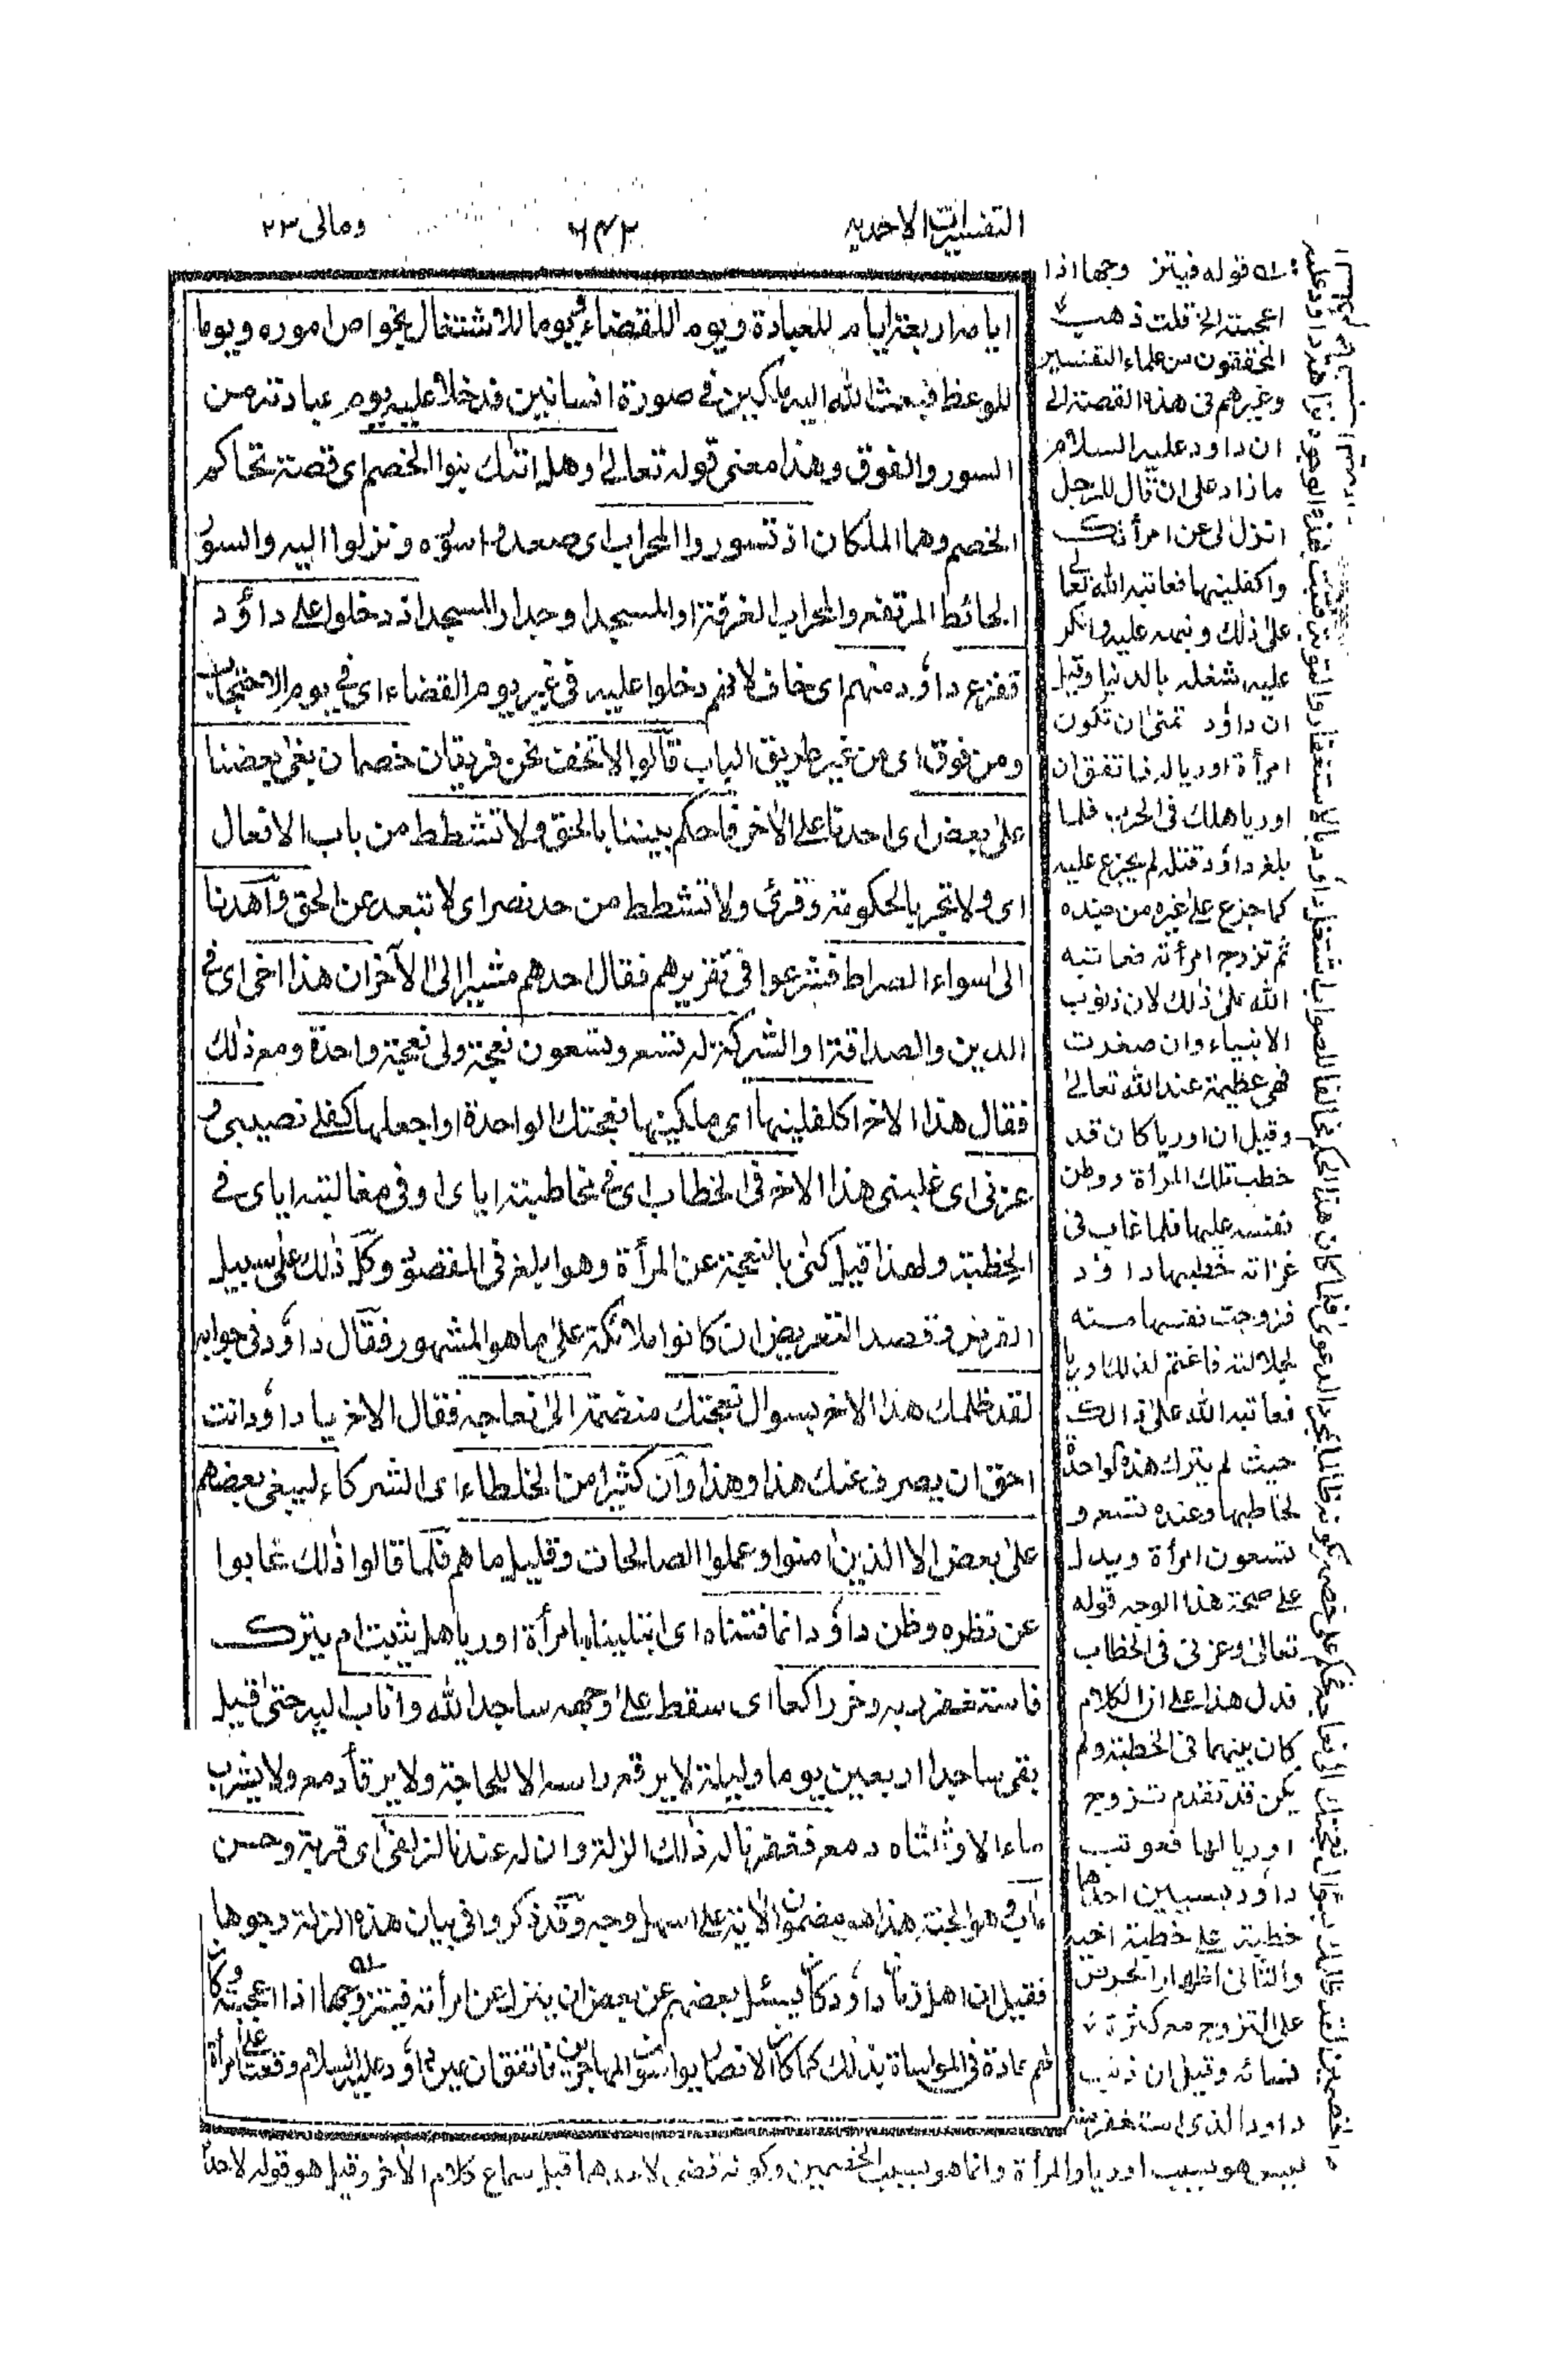 التفسيرات الاحمديه
٦٤٢
ومالى ٢٣
اياما اربعة ايام للعبادة ويوما للقضاء ويوما للاشتغال بخواص اموره ويوما
للوعظ فبعث الله اليه ملكين فى صورة انسانين فدخلا عليه يوم عبادته من
السور والفوق وهذا معنى قوله تعالى وهل اتٰك نبؤا الخصم اى قصة تحاكم
الخصم وهما الملكان اذ تسوروا المحراب اى صعدوا سوره ونزلوا اليه والسور
الحائط المرتفع والمحراب الغرفة او المسجد اذ دخلوا على داؤد
ففزع داؤد منهم اى خاف لانهم دخلوا عليه فى غير يوم القضاء اى فى يوم الاحتجاب
ومن فوق اى من غير طريق الباب قالوا لا تخف نحن فريقان خصمان بغى بعضنا
على بعض اى احدنا على الاخر فاحكم بيننا بالحق ولا تشطط من باب الافعال
اى ولا تجر بالحكومة وقرئ ولا تشطط من حد نصر اى لا تبعد عن الحق واهدنا
الى سواء الصراط فشرعوا فى تقريرهم فقال احدهم مشيرا الى الآخر ان هذا اخى اى فى
الدين والصداقة او الشركة له تسع وتسعون نعجة ولى نعجة واحدة ومع ذلك
فقال هذا الاخ اكفلنيها اى ملكنيها نعجتك الواحدة او اجعلها كفلى نصيبى و
عزنى اى غلبنى هذا الاخ فى الخطاب اى فى مخاطبته اياى او فى مغالبته اياى فى
الخطبة ولهذا قيل كنى بالنعجة عن المرأة وهو ابلغ فى المقصود وكل ذلك على سبيل
الفرض وقصد التعريض ان كانوا ملائكة على ما هو المشهور فقال داؤد فى جوابه
لقد ظلمك هذا الاخ بسوال نعجتك منضمة الى نعاجه فقال الاخر يا داؤد انت
احق ان يصرف عنك هذا وهذا وان كثيرا من الخلطاء اى الشركاء ليبغى بعضهم
على بعض الا الذين امنوا وعملوا الصالحات وقليل ما هم فلما قالوا ذلك غابوا
عن نظره وظن داؤد انما فتناه اى ابتليناه بامرأة اوريا هل يثبت ام يترك
فاستغفر ربه وخر راكعا اى سقط على وجهه ساجدا لله واناب اليه حتى قيل
بقى ساجدا اربعين يوما وليلة لا يرفع راسه الا للحاجة ولا يرقأ دمعه ولا يشرب
ماء الا وثلثاه دمع فغفرنا له ذلك الزلة وان له عندنا لزلفى اى قربة وحسن
مآب وهو الجنة هذا هو مضمون الآية على اسهل وجه وقد ذكروا فى بيان هذه الزلة وجوها
فقيل ان اهل زمان داؤد كان يسئل بعضهم عن بعض ان ينزل عن امرأته فيتزوجها اذا اعجبته وكان
لهم عادة فى المواساة بذلك كما كان الانصار يواسون المهاجرين فاتفق ان عين داؤد عليه السلام وقعت على امرأة
له قوله فيتزوجها اذا
اعجبته الخ قلت ذهب
المحققون من علماء التفسير
وغيرهم فى هذه القصة الى
ان داود عليه السلام
ما زاد على ان قال للرجل
انزل لى عن امرأتك
واكفلنيها فعاتبه الله تعالى
على ذلك ونبهه عليه وانكر
عليه شغله بالدنيا وقيل
ان داؤد تمنى ان تكون
امرأة اوريا له فاتفق ان
اوريا هلك فى الحرب فلما
بلغ داؤد قتله لم يجزع عليه
كما جزع على غيره من جنده
ثم تزوج امرأته فعاتبه
الله على ذلك لان ذنوب
الانبياء وان صغرت
فهى عظيمة عند الله تعالى
وقيل ان اوريا كان قد
خطب تلك المرأة ووطن
نفسه عليها فلما غاب فى
غزاته خطبها داؤد
فزوجت نفسها منه
لجلالته فاغتم لذلك اوريا
فعاتبه الله على ذالك
حيث لم يترك هذه الواحدة
لخاطبها وعنده تسع و
تسعون امرأة ويدل
على صحة هذا الوجه قوله
تعالى وعزنى فى الخطاب
فدل هذا على ان الكلام
كان بينهما فى الخطبة ولم
يكن قد تقدم تزوج
اوريا لها فعوتب
داؤد بسببين احدهما
خطبته على خطبة اخيه
والثانى اظهار الحرص
على التزوج مع كثرة
نسائه وقيل ان ذنب
داود الذى استغفر منه
ليس هو بسبب اوريا والمرأة وانما هو بسبب الخصمين وكونه قضى لاحدهما قبل سماع كلام الآخر وقيل هو قوله لاحد
الخصمين لقد ظلمك بسؤال نعجتك الى نعاجه فحكم على خصمه بكونه ظالما بمجرد الدعوى فلما كان هذا الحكم مخالفا للصواب اشتغل داؤد بالاستغفار والتوبة فثبت بهذه الوجوه نزاهة داود عليه